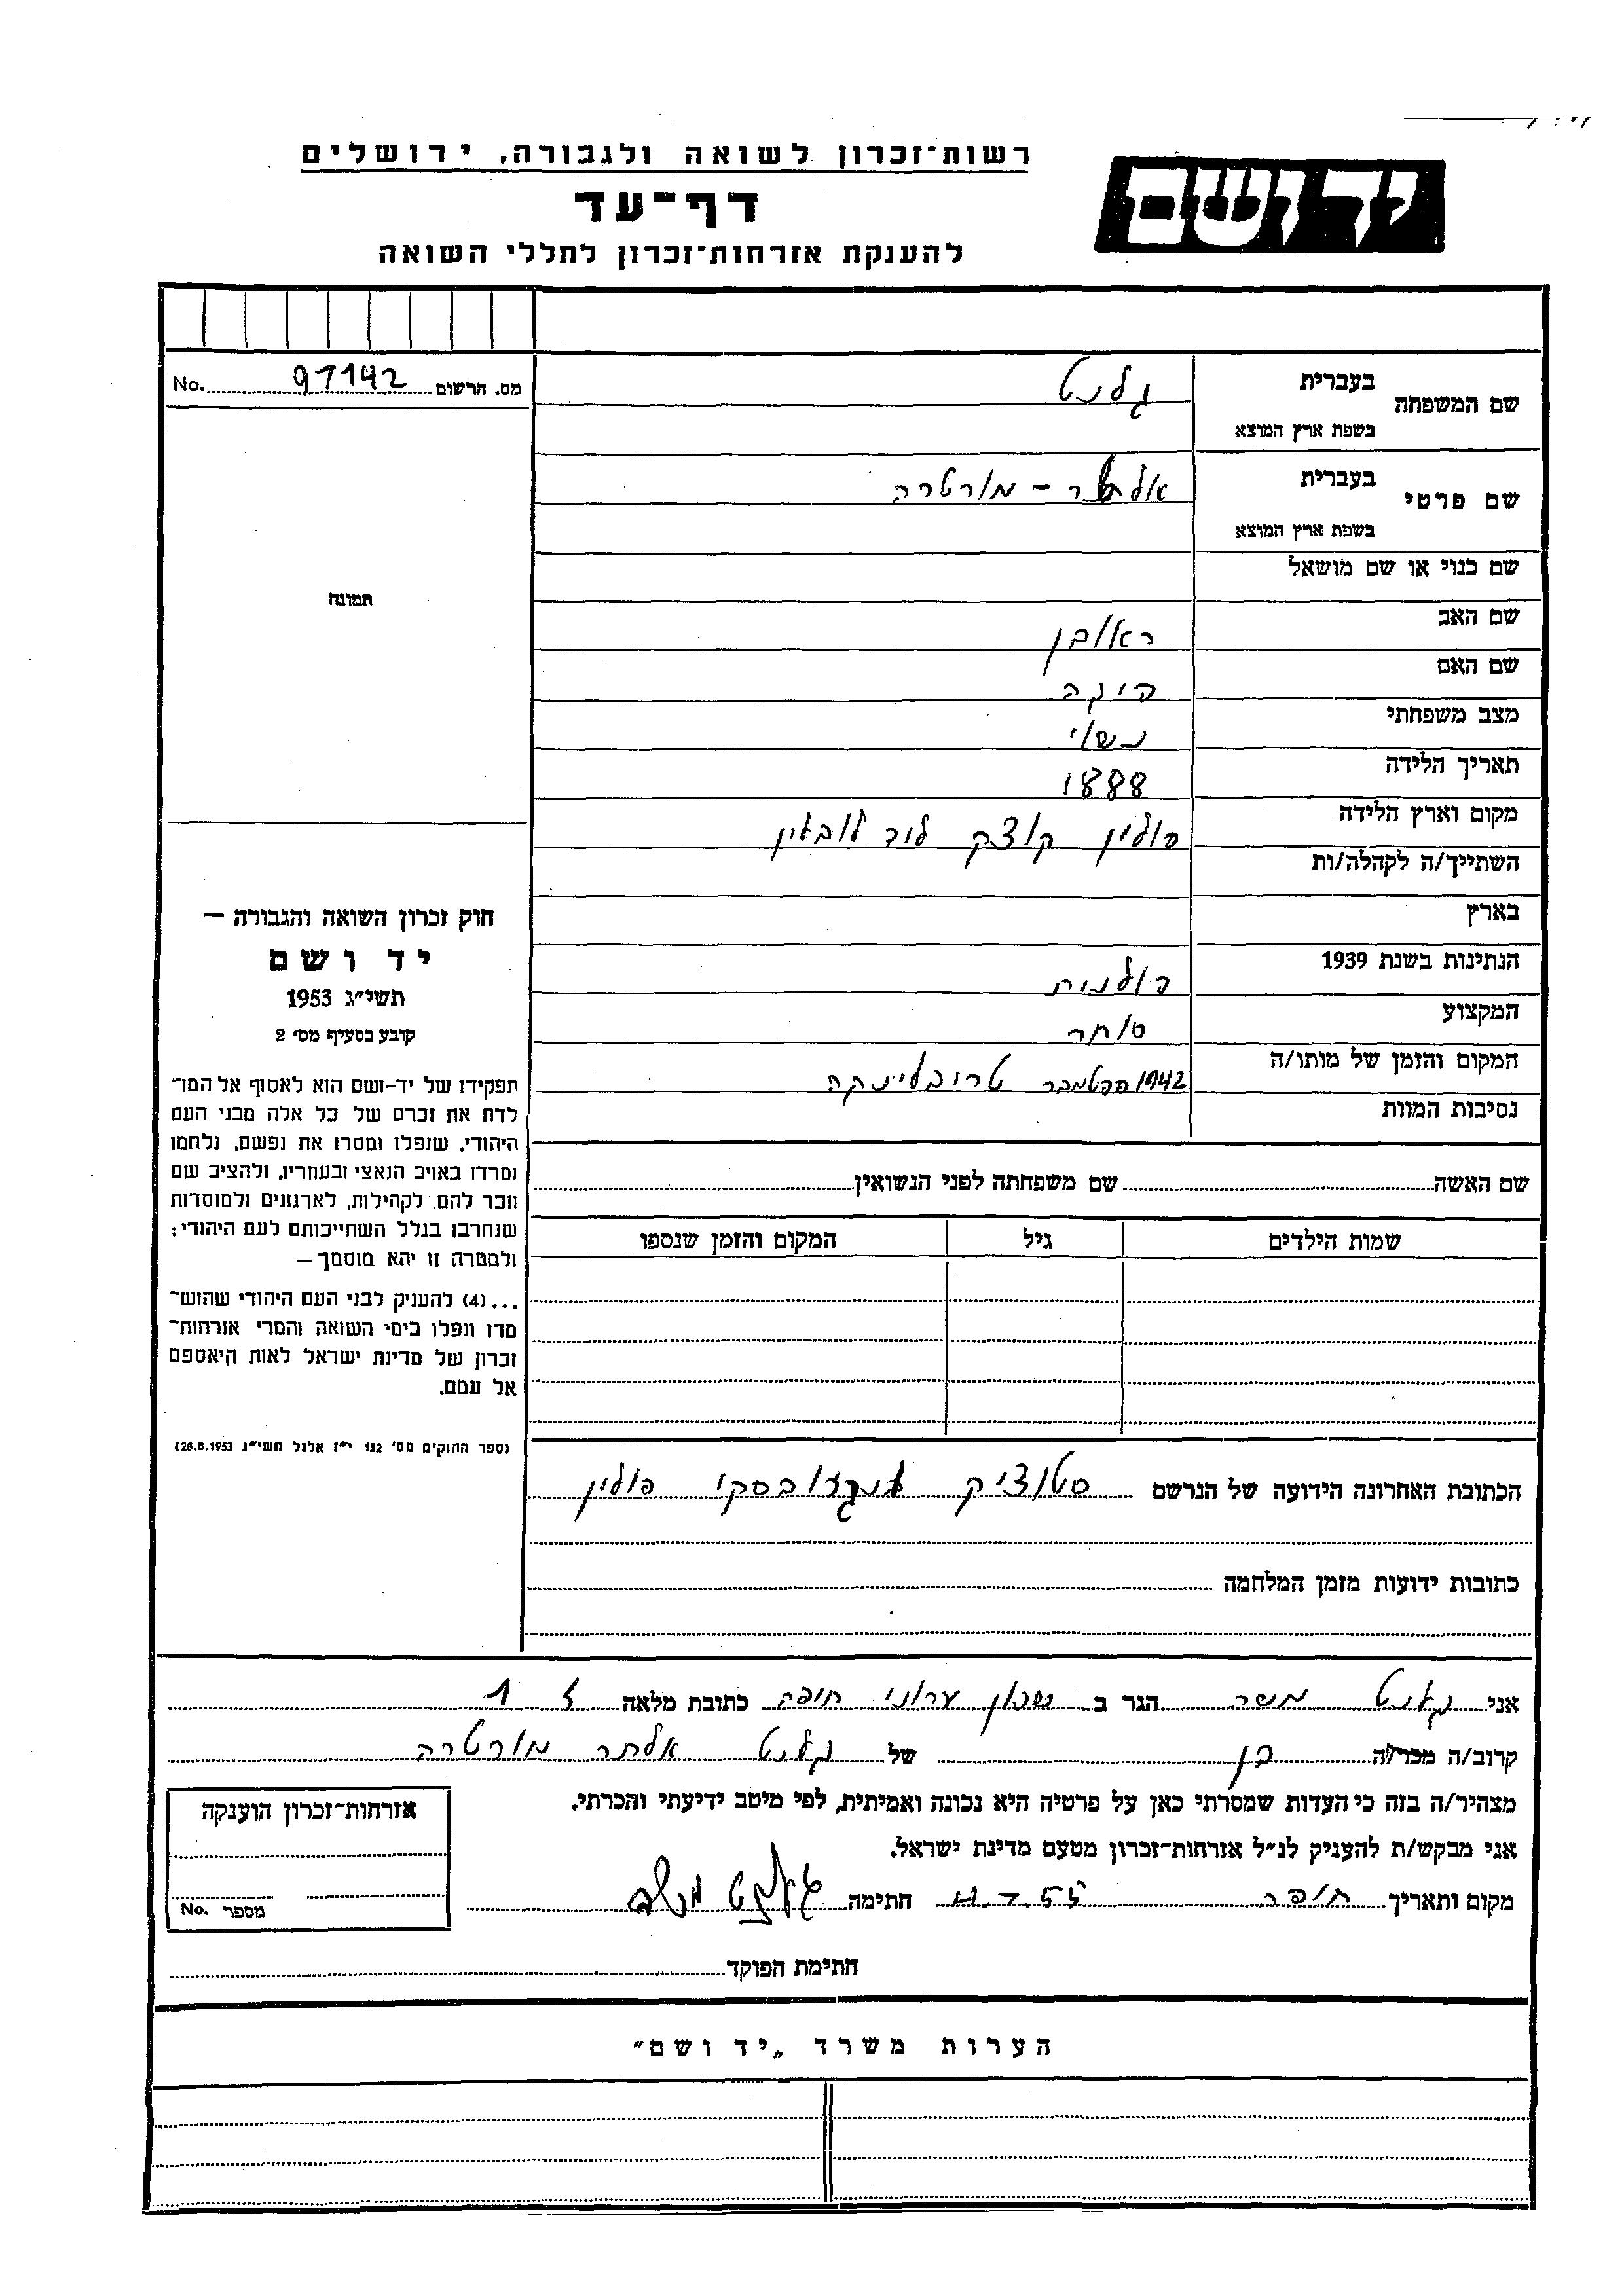 רשות-זכרון לשואה ולגבורה, ירושלים
יד ושם
דף-עד
להענקת אזרחות-זכרון לחללי השואה
מס. הרשום 97142 No.
שם המשפחה בעברית גלנט
בשפת ארץ המוצא
שם פרטי בעברית אלתר - מורטרה
בשפת ארץ המוצא
שם כנוי או שם מושאל
תמונה
שם האב ראובן
שם האם
מצב משפחתי נשוי
תאריך הלידה 1888
מקום וארץ הלידה פולין קוצק ליד לובלין
השתייך/ה לקהלה/ות
בארץ
הנתינות בשנת 1939 פולנית
המקצוע סוחר
המקום והזמן של מותו/ה 1942 ספטמבר טרובלינקה
נסיבות המוות
חוק זכרון השואה והגבורה —
יד ושם
תשי"ג 1953
קובע בסעיף מס' 2
תפקידו של יד-ושם הוא לאסוף אל המו־
לדת את זכרם של כל אלה מבני העם
היהודי, שנפלו ומסרו את נפשם, נלחמו
ומרדו באויב הנאצי ובעוזריו, ולהציב שם
וזכר להם, לקהילות, לארגונים ולמוסדות
שנחרבו בגלל השתייכותם לעם היהודי;
ולמטרה זו יהא מוסמך —
...(4) להעניק לבני העם היהודי שהוש־
מדו ונפלו בימי השואה והמרי אזרחות־
זכרון של מדינת ישראל לאות היאספם
אל עמם.
(ספר החוקים מס' 132 י"ז אלול תשי"ג 28.8.1953)
שם האשה שם משפחתה לפני הנשואין
שמות הילדים גיל המקום והזמן שנספו
הכתובת האחרונה הידועה של הנרשם סטוציק פולין
כתובות ידועות מזמן המלחמה
אני גלנט משה הגר ב חיפה כתובת מלאה 1
קרוב/ה מכר/ה בן של גלנט אלתר מורטרה
מצהיר/ה בזה כי העדות שמסרתי כאן על פרטיה היא נכונה ואמיתית, לפי מיטב ידיעתי והכרתי.
אני מבקש/ת להעניק לנ"ל אזרחות-זכרון מטעם מדינת ישראל.
מקום ותאריך חיפה חתימה גלנט משה
חתימת הפוקד
אזרחות-זכרון הוענקה
מספר No.
הערות משרד „יד ושם"